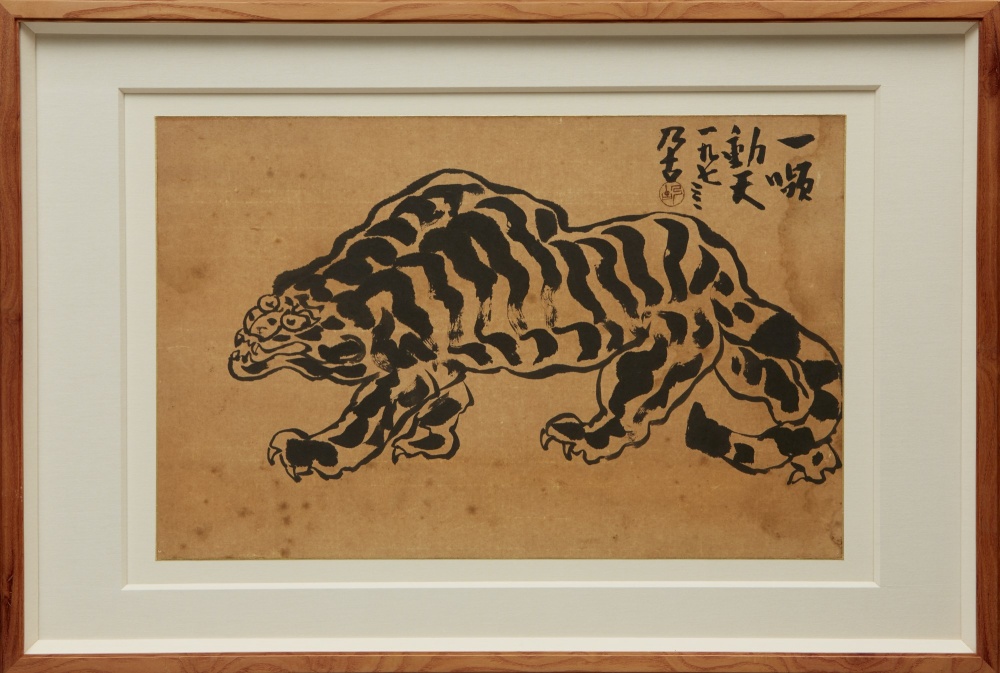 一嚬
動天
一九七三
乃古